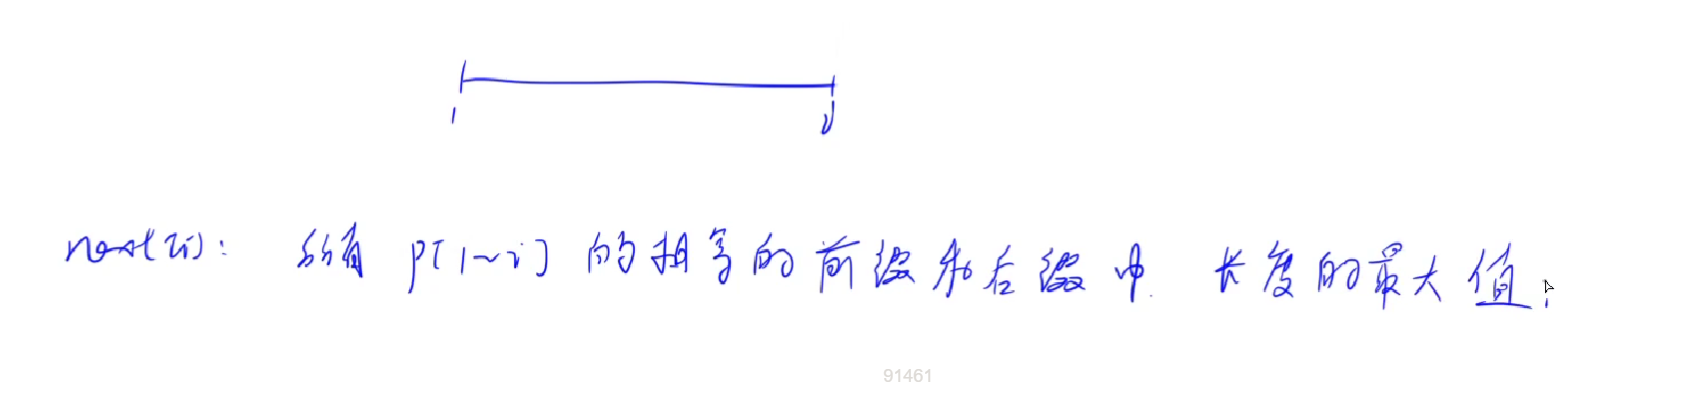 1 i
next[i]: 所有 p[1~i] 的相等的前缀和后缀中 长度的最大值;
91461